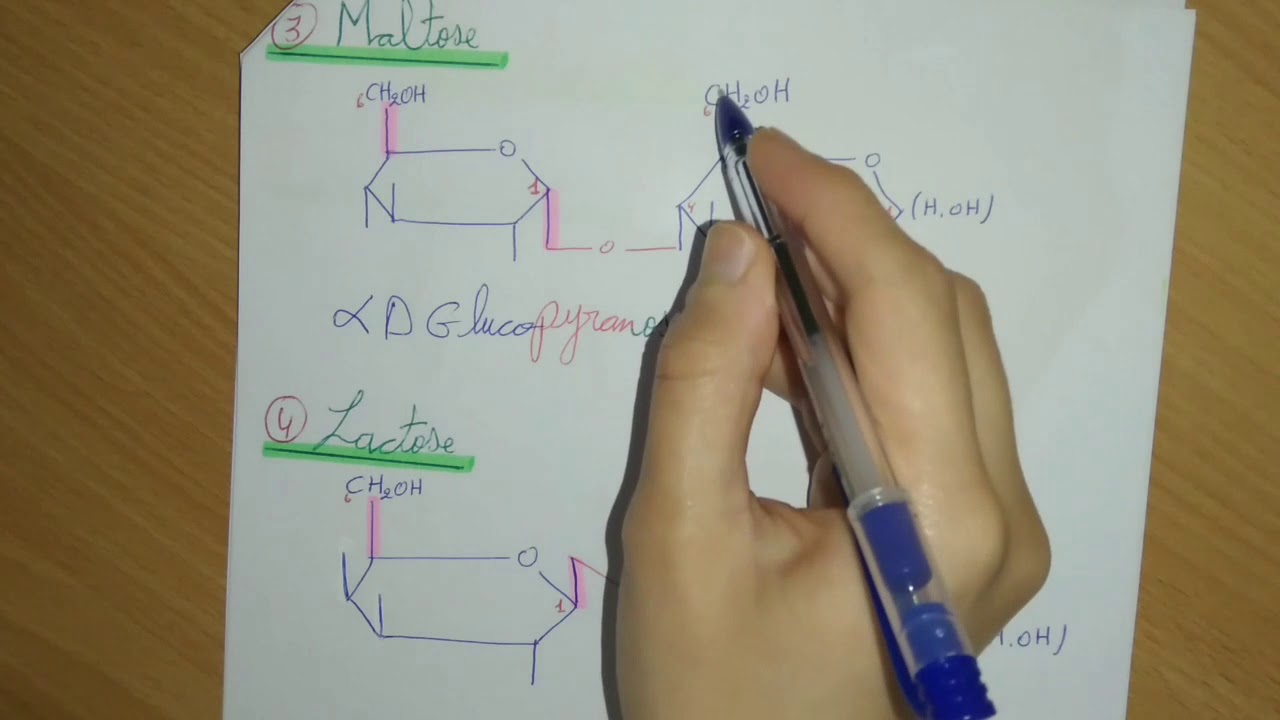 3 Maltose
6 CH2OH 6 CH2OH
O O
1 4 1 (H.OH)
O
α D Glucopyranos
4 Lactose
6 CH2OH
O
1
H.OH)